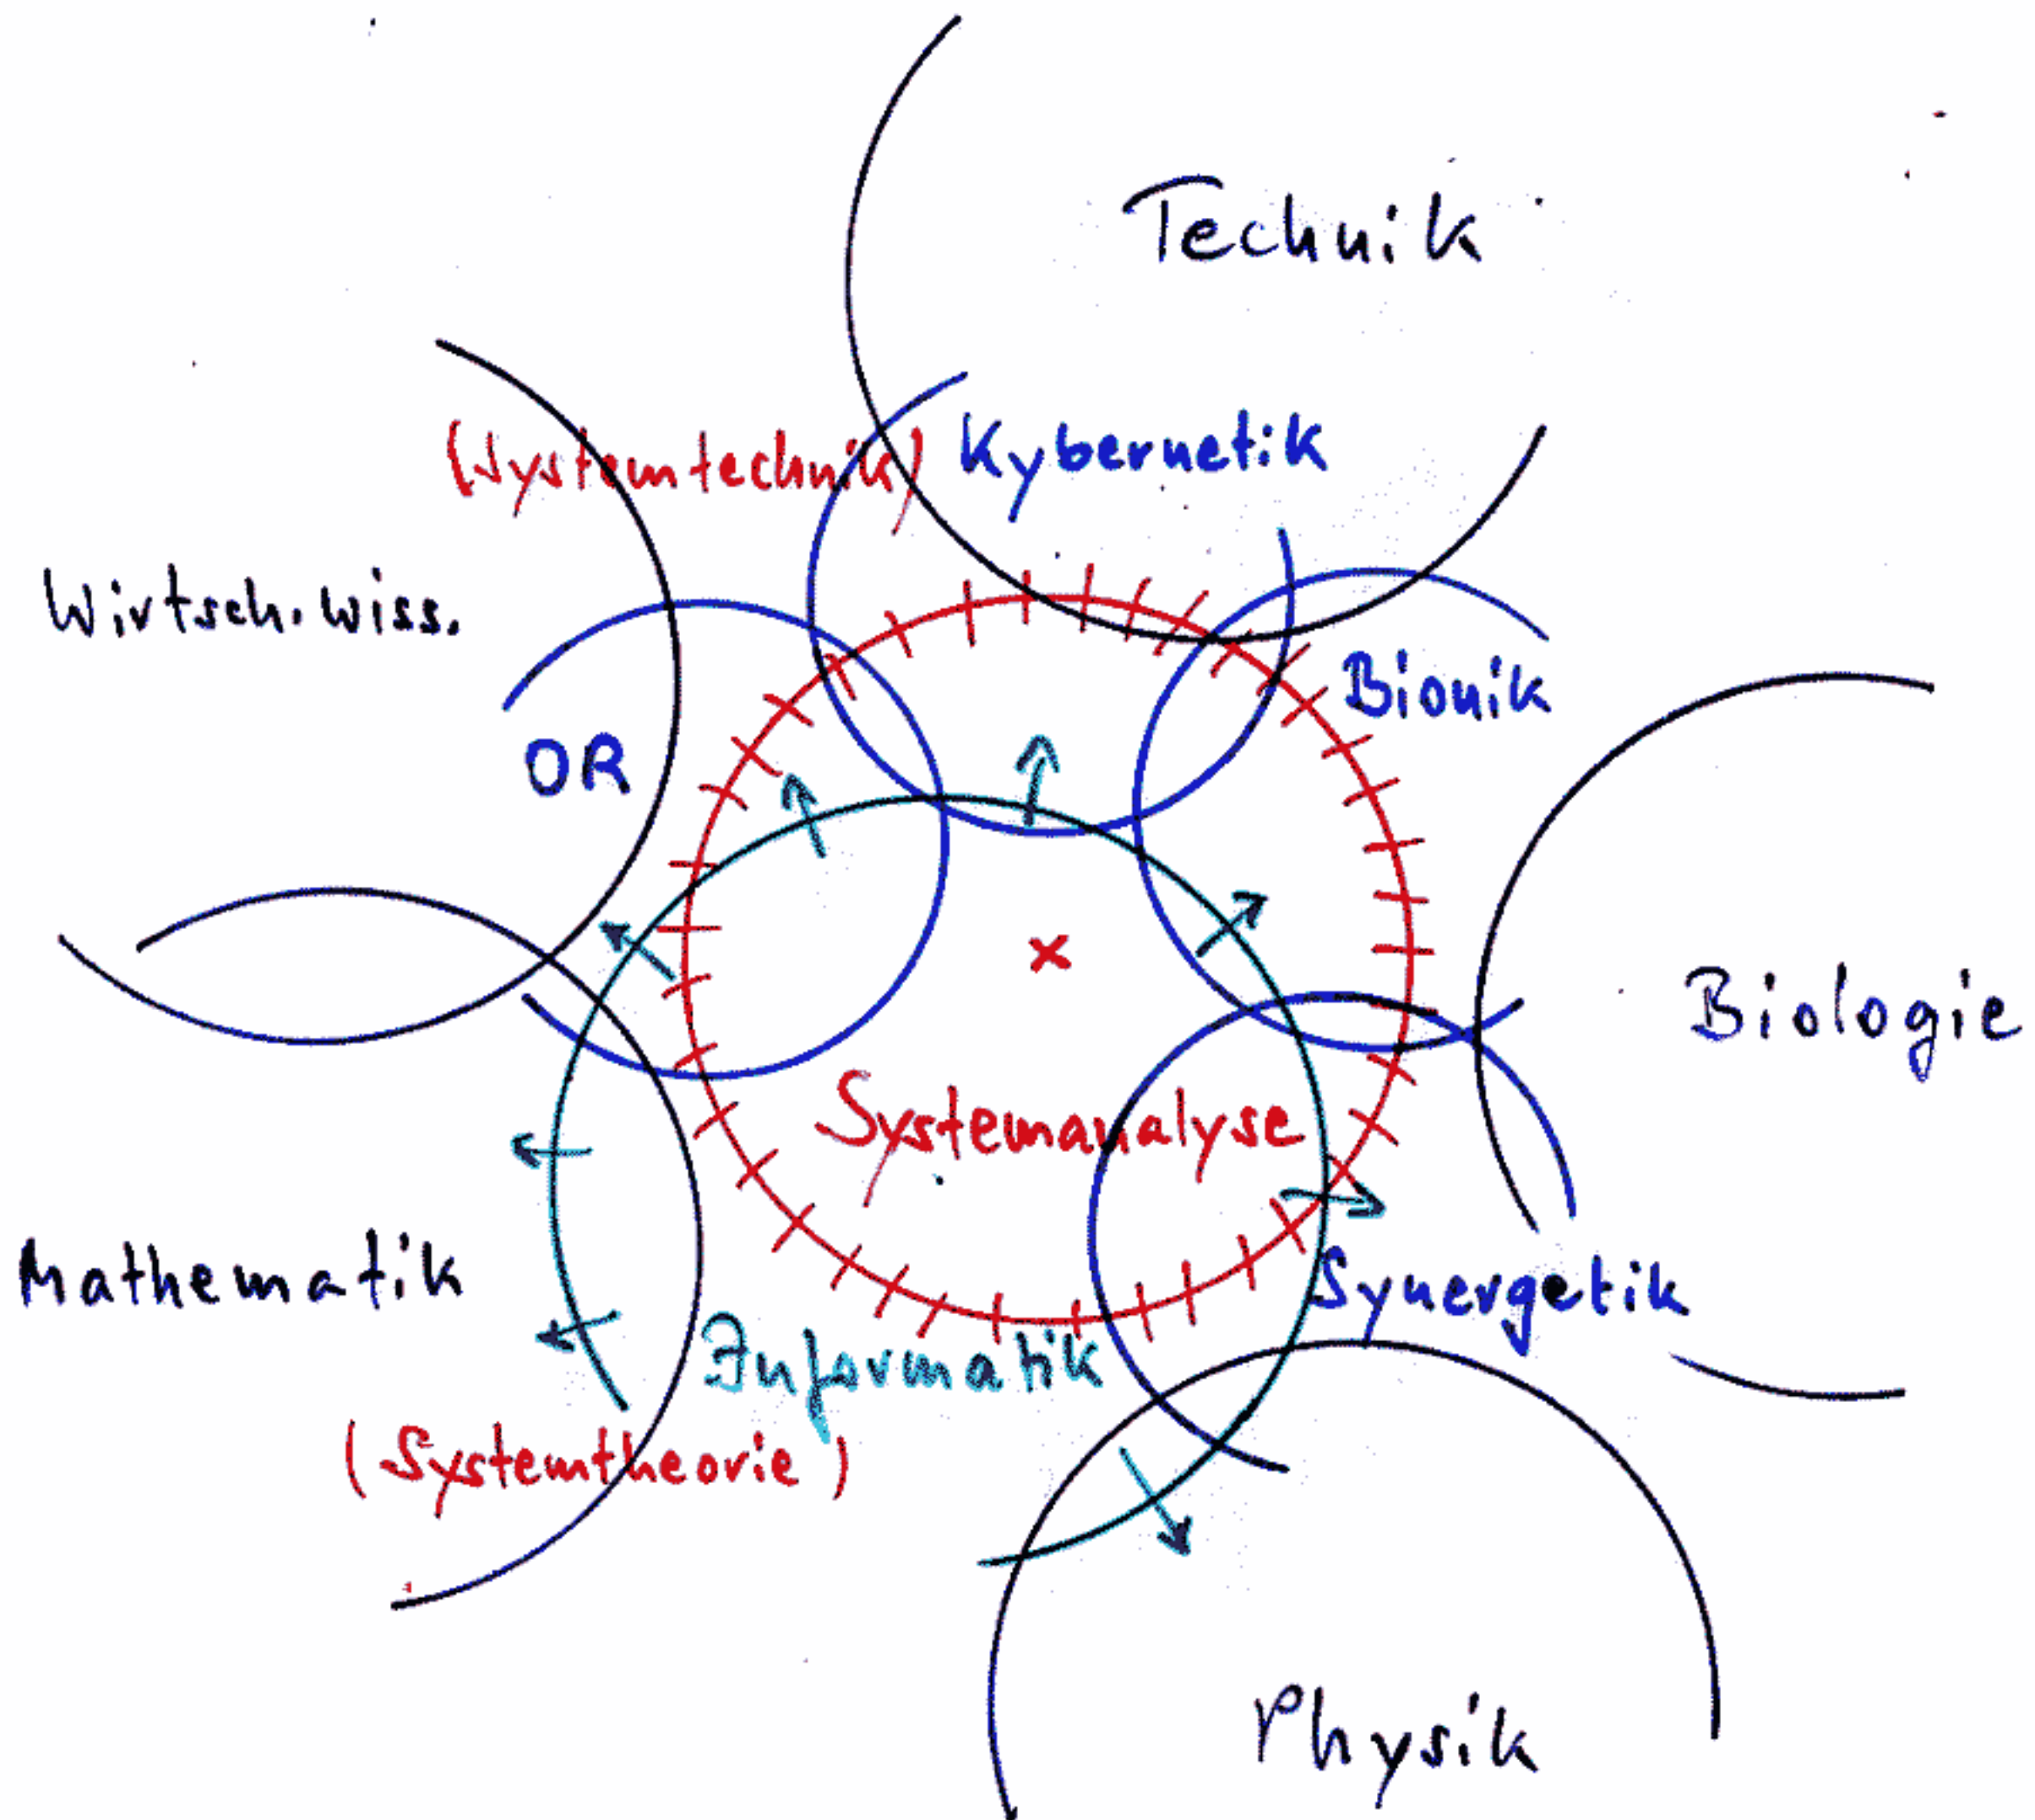 Technik
(Systemtechnik)
Kybernetik
Wirtsch. wiss.
Bionik
OR
Biologie
Systemanalyse
Mathematik
Synergetik
Informatik
(Systemtheorie)
Physik